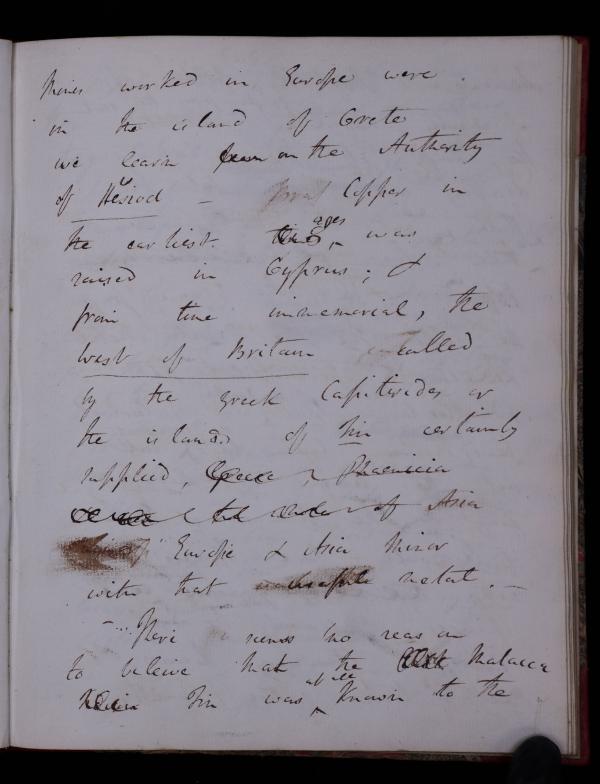 Mines worked in Europe were
in the island of Crete
we learn on the Authority
of Hesiod - Copper in
the earliest ages was
raised in Cyprus; &
from time immemorial, the
West of Britain called
by the Greek Cassiterides or
the islands of Tin certainly
supplied, Greece, Phoenicia
of Asia
Europe & Asia Minor
with that metal. -
- There seems no reason
to beleive that the Malacca
Tin was at all known to the